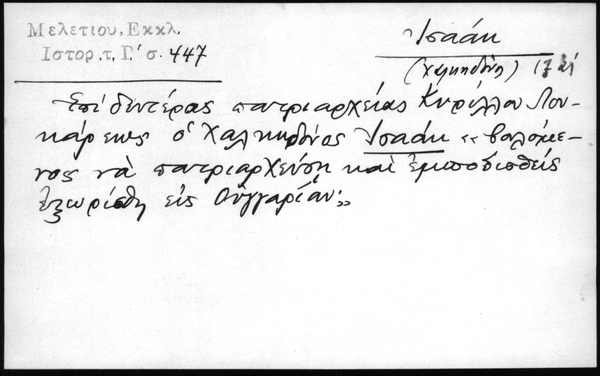 Μελετίου, Εκκλ.
Ἱστορ. τ. Γ΄ σ. 447
Ἰσαάκ
(Χαλκηδόνος)
Ἐπὶ δευτέρας πατριαρχείας Κυρίλλου Λου-
κάρεως ὁ Χαλκηδόνος Ἰσαάκ «βουλόμε-
νος νὰ πατριαρχεύσῃ καὶ ἐμποδισθεὶς
ἐξωρίσθη εἰς Οὐγγαρίαν;»